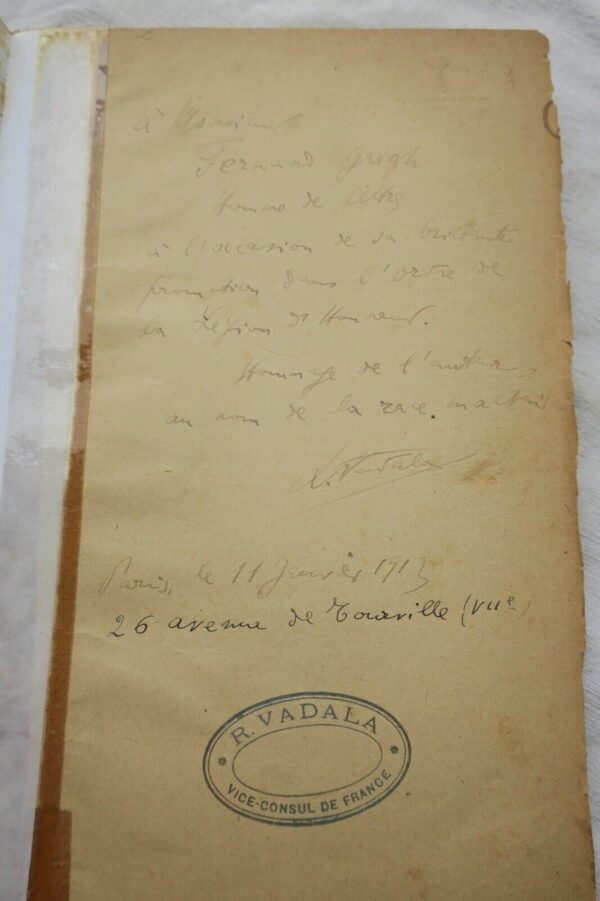 à Monsieur
Fernand Gregh
Homme de lettres
à l'occasion de sa brillante
promotion dans l'Ordre de
la Légion d'Honneur.
Hommage de l'auteur,
au nom de la race maltaise
R. Vadala
Paris, le 11 Janvier 1913
26 avenue de Tourville (VIIe)
R. VADALA
VICE-CONSUL DE FRANCE